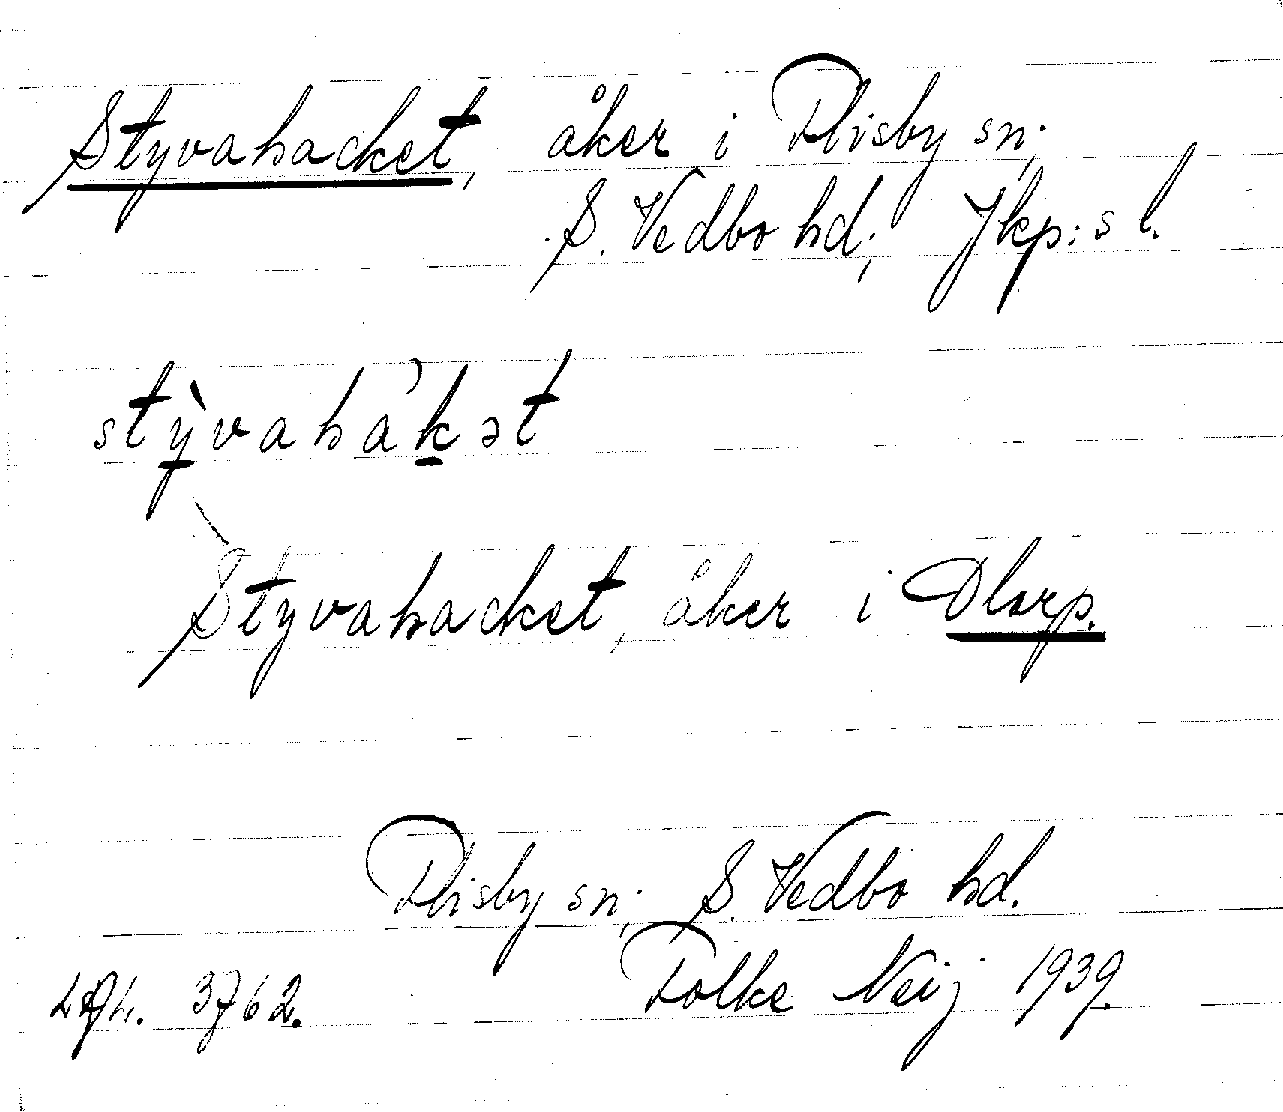 Styvahacket, åker i Flisby sn;
S. Vedbo hd; Jkp:s l.
stỳ̱vahák̠ət
Styvahacket, åker i
Flisby sn; S. Vedbo hd.
3762. Folke Neij 1939.